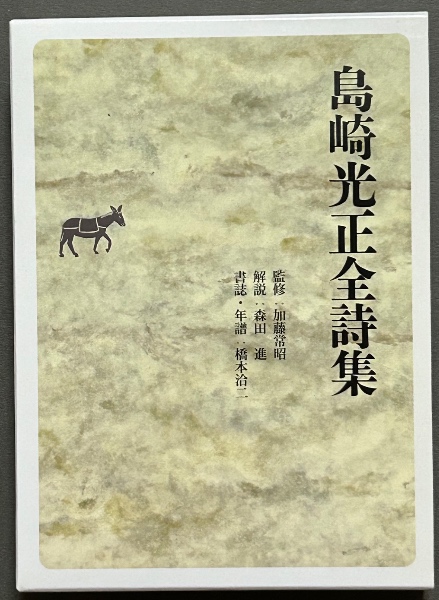 島崎光正全詩集
監修：加藤常昭
解説：森田　進
書誌・年譜：橋本治二